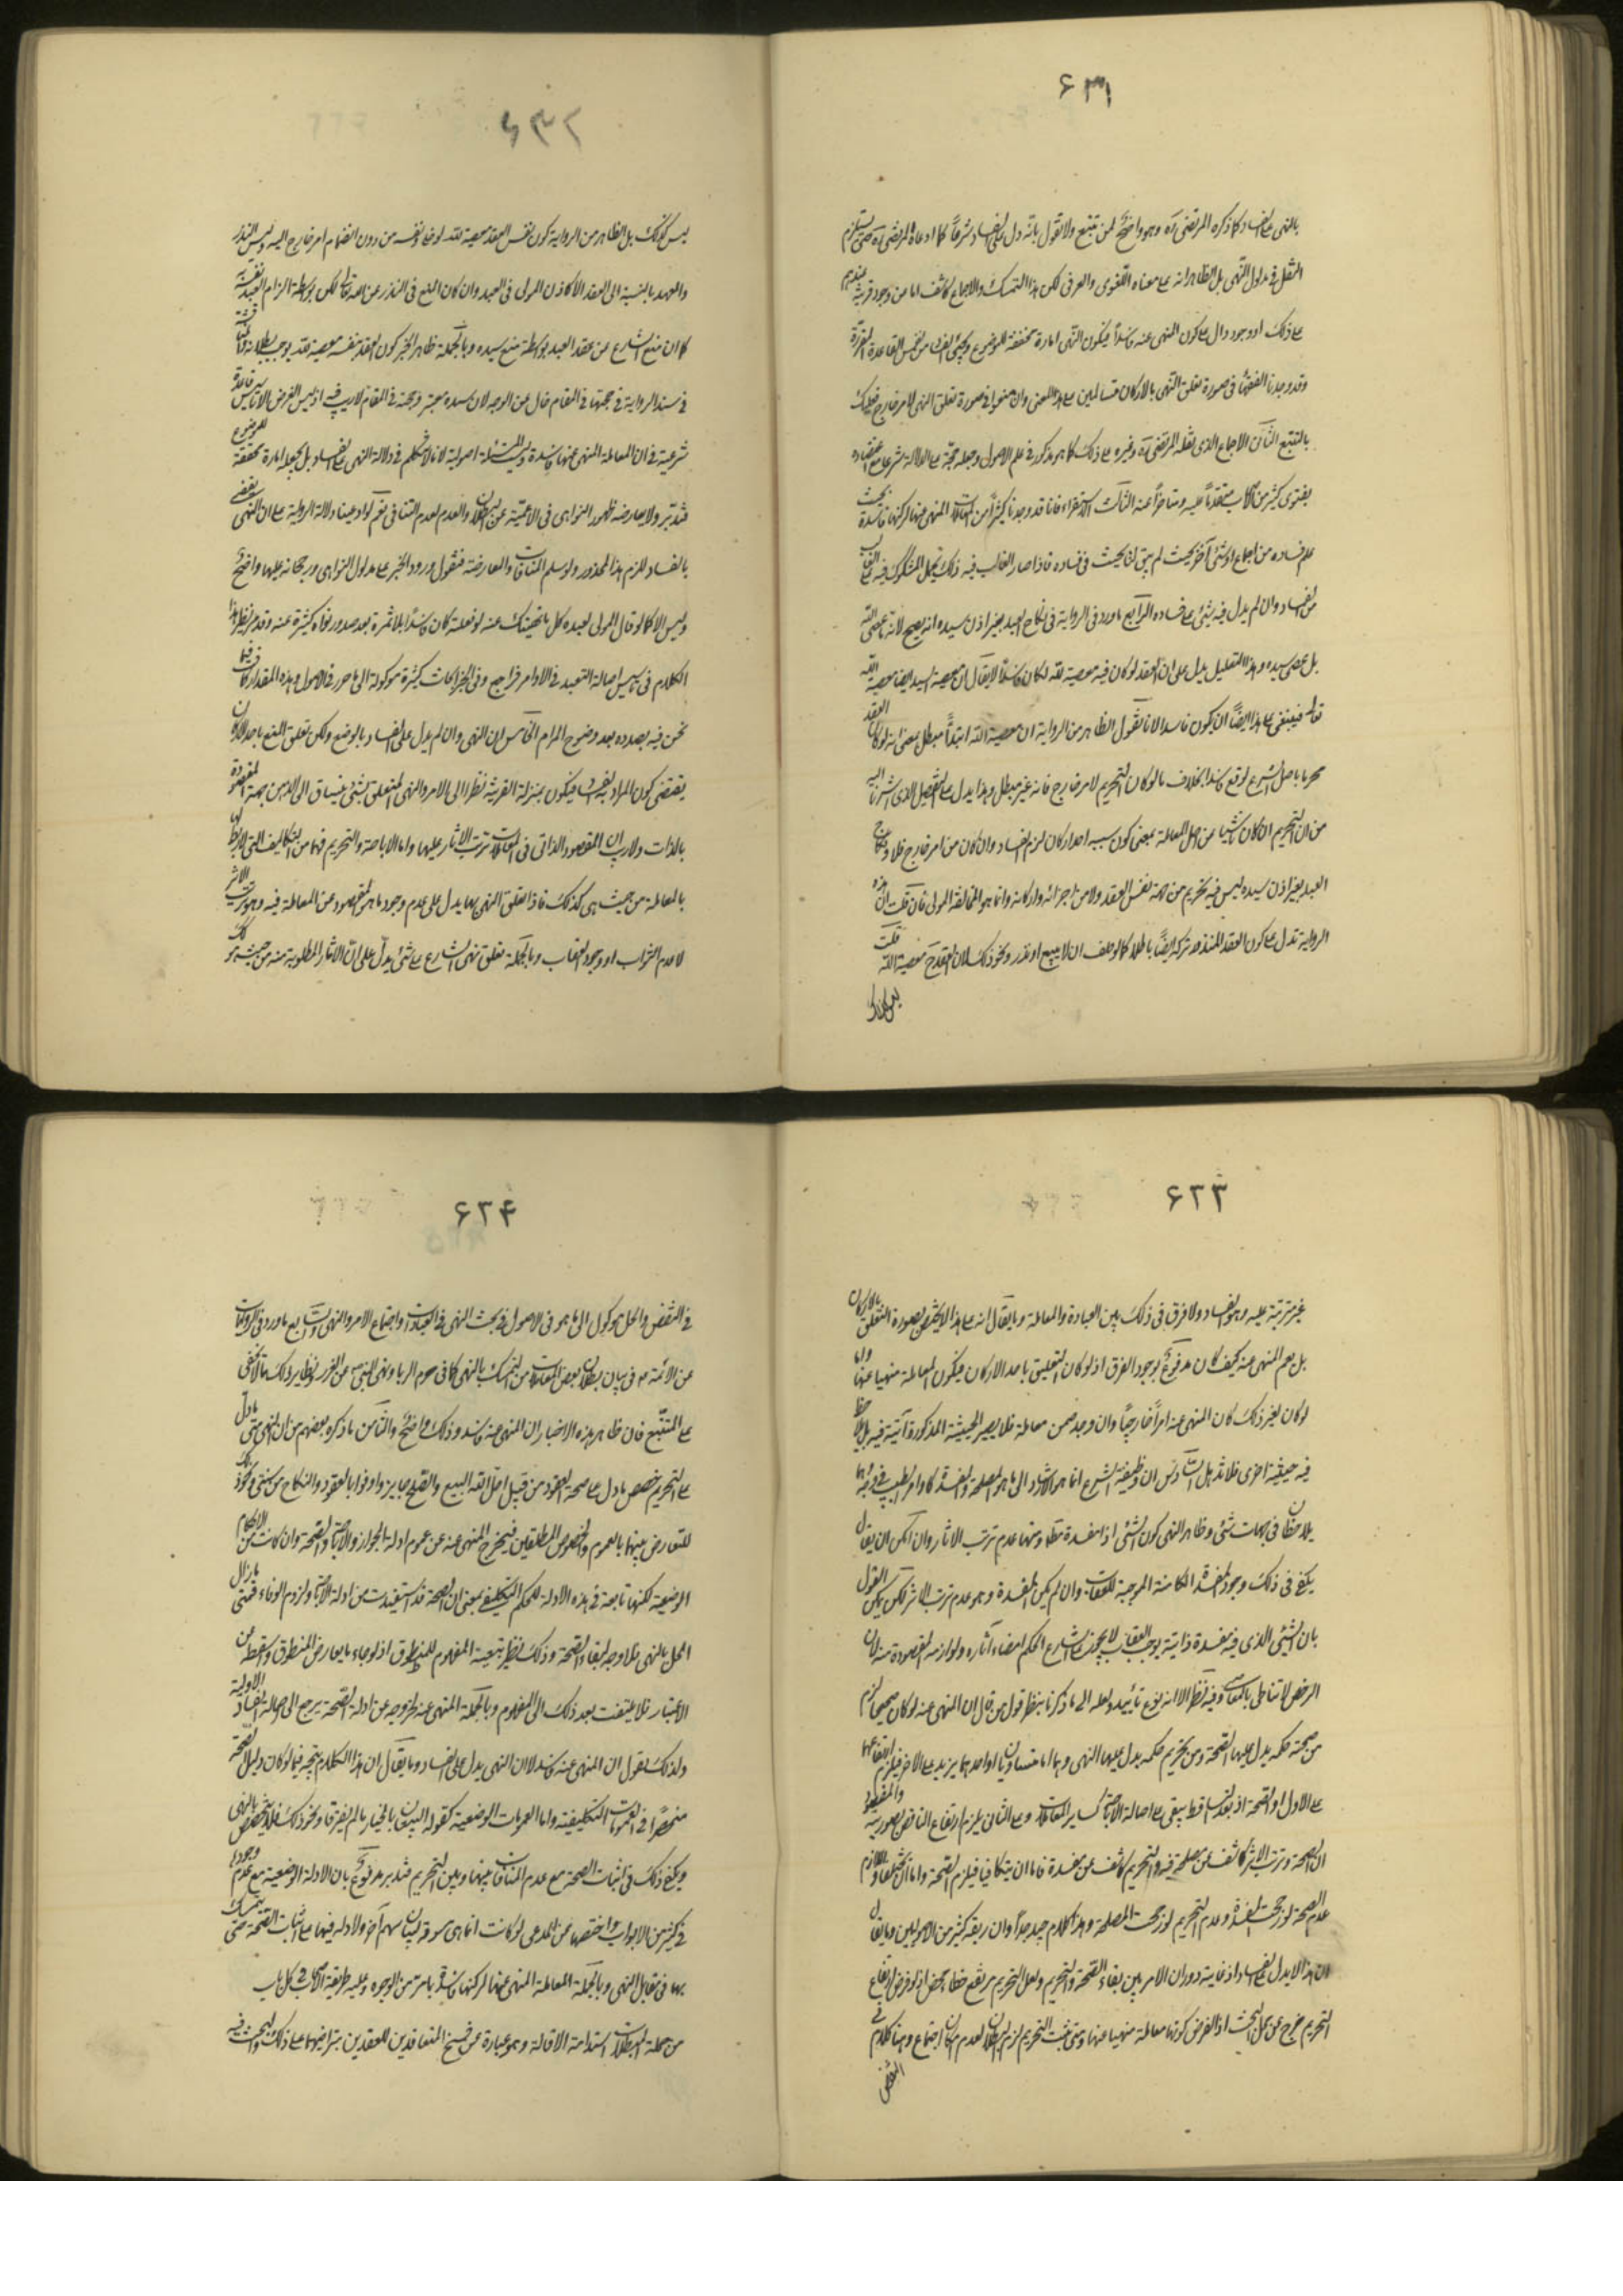 ۶۳۱
بالنهی علی الفساد کما ذکره المرتضی ره وهو واضح لمن تتبع ولا نقول بانه دل علی الفساد شرعاً کما ادعاه المرتضی ره حتی یستلزم
النقل فی مدلول النهی بل الظاهر انه علی معناه اللغوی والعرفی لکن هذا التمسک والاجماع کاشف اما من وجود قرینة عندهم
علی ذلک او وجود دال علی کون المنهی عنه فاسداً فیکون النهی امارة محققة للموضوع
وقد وجدنا الفقهاء فی صورة تعلق النهی بالارکان متسالمین علی هذا المعنی وان منعوا فی صورة تعلق النهی لامر خارج فعلیک
بالتتبع الثانی الاجماع الذی نقله المرتضی ره وغیره علی ذلک کما هو مذکور فی علم الاصول وجعله حجة علی الدلالة شرعا مع اعتضاده
بفتوی کثیر من الاصحاب متقدماً علیه ومتاخراً عنه الثالث الاستقراء فانا قد وجدنا کثیراً من المعاملات المنهی عنها لرکنها فاسدة بحیث
علم فساده من اجماع او شئ آخر بحیث لم یبق لنا بحث فی فساده فاذا صار الغالب فیه ذلک یحمل المشکوک فیه علی الغالب
من الفساد وان لم یدل فیه شئ علی فساده الرابع ما ورد فی الروایة فی نکاح العبد بغیر اذن سیده انه یصح لانه ما عصی الله
بل عصی سیده وهذا التعلیل یدل علی ان العقد لو کان فیه معصیة لله لکان فاسداً لا یقال ان معصیة السید ایضا معصیة الله
تعالی فینبغی علی هذا ایضاً ان یکون فاسدا لانا نقول الظاهر من الروایة ان معصیة الله ابتداءً مبطل بمعنی انه لو کان العقد
محرما باصل الشرع لوقع فاسدا بخلاف ما لو کان التحریم لامر خارج فانه غیر مبطل وهذا یدل علی التفصیل الذی اشرنا الیه
من ان التحریم ان کان ناشیا من اصل المعاملة بمعنی کون سببه احد ارکان لزم الفساد وان کان من امر خارج فلا ونکاح
العبد بغیر اذن سیده لیس فیه تحریم من جهة نفس العقد ولا من اجزائه وارکانه وانما هو لمخالفة المولی فان قلت ان هذه
الروایة تدل علی کون العقد المنذور ترکه ایضاً باطلا کما لو حلف ان لا یبیع او نذر ونحو ذلک لان العقد ح معصیة الله قلت
لیس کذلک
۶۳۲
لیس کذلک بل الظاهر من الروایة کون نفس العقد معصیة لله لو خلی ونفسه من دون انضمام امر خارج الیه ولیس النذر
والعهد بالنسبة الی العقد الا کاذن المولی فی العبد وان کان المنع فی النذر من الله تعالی لکن بواسطة الزام العبد نفسه
کما ان منع الشارع عن عقد العبد بواسطة منع سیده وبالجملة ظاهر الخبر کون العقد بنفسه معصیة لله یوجب بطلانه
فی سند الروایة فی حجتها فی المقام خال عن الوجه لان سنده معتبر وحجة فی المقام لا ریب فیه اذ لیس الغرض الا تاسیس قاعدة
شرعیة فی ان المعاملة المنهی عنها فاسدة ولیست المسئلة اصولیة لانا لا نتکلم فی دلالة النهی علی الفساد بل نجعله امارة محققة للموضوع
فتدبر ولا یعارضه ظهور النواهی فی الاعمیة عن البطلان والعدم لعدم التنافی نعم لو ادعینا دلالة الروایة علی ان النهی یقتضی
بالفساد للزم هذا المحذور ولو سلم المنافات والمعارضة فنقول ورود الخبر علی مدلول النواهی ورجحانه علیها واضح
ولیس الا کما لو قال المولی لعبده کل ما نهیتک عنه لو فعلته کان فاسداً بلا ثمرة بعد صدور نواه کثیرة عنه وقد مر نظیر هذا
الکلام فی تاسیس اصالة التعبد فی الاوامر فراجع وفی المقام ابحاث کثیرة موکولة الی ما حرر فی الاصول وهذه المقدار کاف فیما
نحن فیه بصدده بعد وضوح المرام الخامس ان النهی وان لم یدل علی الفساد بالوضع ولکن تعلق المنع باحد الارکان
یقتضی کون المراد الفساد فیکون بمنزلة القرینة نظرا الی الامر والنهی المتعلق بشئ ینساق الی الذهن جهته المقصودة
بالذات ولا ریب ان المقصود الذاتی فی المعاملات ترتب الاثار علیها واما الاباحة والتحریم فهما من التکالیف التی لا ربط لها
بالمعاملة من حیث هی کذلک فاذا تعلق النهی بها یدل علی عدم وجود ما هو المقصود من المعاملة فیه وهو ترتب الاثر
لا عدم الثواب او وجود العقاب وبالجملة تعلق نهی الشارع علی شئ یدل علی ان الاثار المطلوبة منه من حیث هو کک
۶۳۳
غیر مترتبة علیه وهو الفساد ولا فرق فی ذلک بین العبادة والمعاملة وما یقال انه علی هذا لا یختص بصورة التعلق بالارکان
بل یعم المنهی عنه کیف کان مدفوع بوجود الفرق اذ لو کان التعلیق باحد الارکان فیکون المعاملة منهیا عنها واما
لو کان لغیر ذلک کان المنهی عنه امراً خارجیاً وان وجد ضمن معاملة فلا یصیر الحیثیة المذکورة آتیة فیه بل یلاحظ
فیه حیثیة اخری فلا تذهل السادس ان وظیفة الشرع انما هو الارشاد الی ما هو المصلحة والمفسدة کاوامر الطبیب فی
یلاحظان فی جهات شئ وظاهر النهی کون الشئ ذا مفسدة مطلقا ومنها عدم ترتب الاثار وان امکن ان یقال
یکفی فی ذلک وجود المفسدة الکامنة الموجبة للعقاب وان لم یکن المفسدة وهو عدم ترتب الاثر لکن یمکن القول
بان الشئ الذی فیه مفسدة ذاتیة یوجب العقاب لا یجوز علی الشارع الحکم امضاء آثاره ولوازمه المقصودة منه لان
الرخص لا تناط بالمعاصی وفیه نظر الا انه نوع تأیید ولعله الی ما ذکرنا ینظر قول من قال ان المنهی عنه لو کان صحیحا لزم
من صحته حکمة یدل علیها الصحة ومن تحریمه حکمة یدل علیها النهی وهما اما متساویان او احدهما یزید علی الاخر فیلزم ارتفاعها
علی الاول او الصحة اذ بعد التساقط یبقی علی اصالة الاباحة کسایر المعاملات وعلی الثانی یلزم ارتفاع الناقص بصورتیه والمقصود
ان الصحة وترتب الاثر کاشف عن مصلحة فیه والتحریم کاشف عن مفسدة فاما ان یتکافیا فیلزم الصحة واما ان یختلفا واللازم
عدم الصحة لو رجحت المفسدة وعدم التحریم لو رجحت المصلحة وهذا کلام جید جداً وان زیفه کثیر من الاصولیین وما یقال
ان هذا لا یدل علی الفساد اذ غایته دوران الامر بین بقاء الصحة والتحریم ولعل التحریم مرتفع خطاء محض اذ لو فرض ارتفاع
التحریم خرج عن محل البحث اذ الغرض کونها معاملة منهیا عنها ومتی ثبت التحریم لزم البطلان لعدم امکان اجتماع وهنا کلام فی
النقض
۶۳۴
فی النقض والحل موکول الی ما هو فی الاصول فی بحث النهی فی العبادات واجتماع الامر والنهی السابع ما ورد فی الروایات
عن الائمة ع فی بیان بطلان بعض المعاملات من التمسک بالنهی کما فی حرم الربا ونهی النبی ص عن الغرر ونظایر ذلک مما لا یخفی
علی المتتبع فان ظاهر هذه الاخبار ان المنهی عنه فاسد وذلک واضح والثامن ما ذکره بعضهم من ان النهی متی ما دل
علی التحریم خصص ما دل علی صحة العقود من قبیل احل الله البیع والصلح جایز واوفوا بالعقود والنکاح من سنتی ونحو ذلک
للتعارض بینهما بالعموم والخصوص المطلقین فیخرج المنهی عنه عن عموم ادلة الجواز والاباحة والصحة وان کانت من الاحکام
الوضعیة لکنها تابعة فی هذه الادلة للحکم التکلیفی بمعنی ان الصحة قد استفیدت من ادلة الاباحة ولزوم الوفاء فمتی ما زال
الحل بالنهی فلا وجه لبقاء الصحة وذلک نظیر تبعیة المفهوم للمنطوق اذ لو جاء ما یعارض المنطوق واسقطه من
الاعتبار فلا یلتفت بعد ذلک الی المفهوم وبالجملة المنهی عنه لخروجه عن ادلة الصحة یرجع الی اصالة الفساد الاولیة
ولذلک نقول ان المنهی عنه فاسد لا لان النهی یدل علی الفساد وما یقال ان هذا الکلام یتجه فیما لو کان دلیل الصحة
منحصراً فی العمومات التکلیفیة واما العمومات الوضعیة کقوله البیعان بالخیار ما لم یفترقا ونحو ذلک فلا یتخصص بالنهی
ویکفی ذلک فی اثبات الصحة مع عدم المنافات بینها وبین التحریم فتدبر مدفوع بان الادلة الوضعیة مع عدم وجودها
فی کثیر من الابواب واختصها من المدعی لو کانت انما هی مسوقة لبیان سهم آخر ولا دلالة فیها علی اثبات الصحة حتی یتمسک
بها فی مقابل النهی وبالجملة المعاملة المنهی عنها لرکنها فاسدة بما مر من الوجوه وعلیه طریقة الاصحاب فی کل باب
من جملة المبطلات استدامة الاقالة وهو عبارة عن فسخ المتعاقدین للعقدین بتراضیهما علی ذلک والبحث فیه